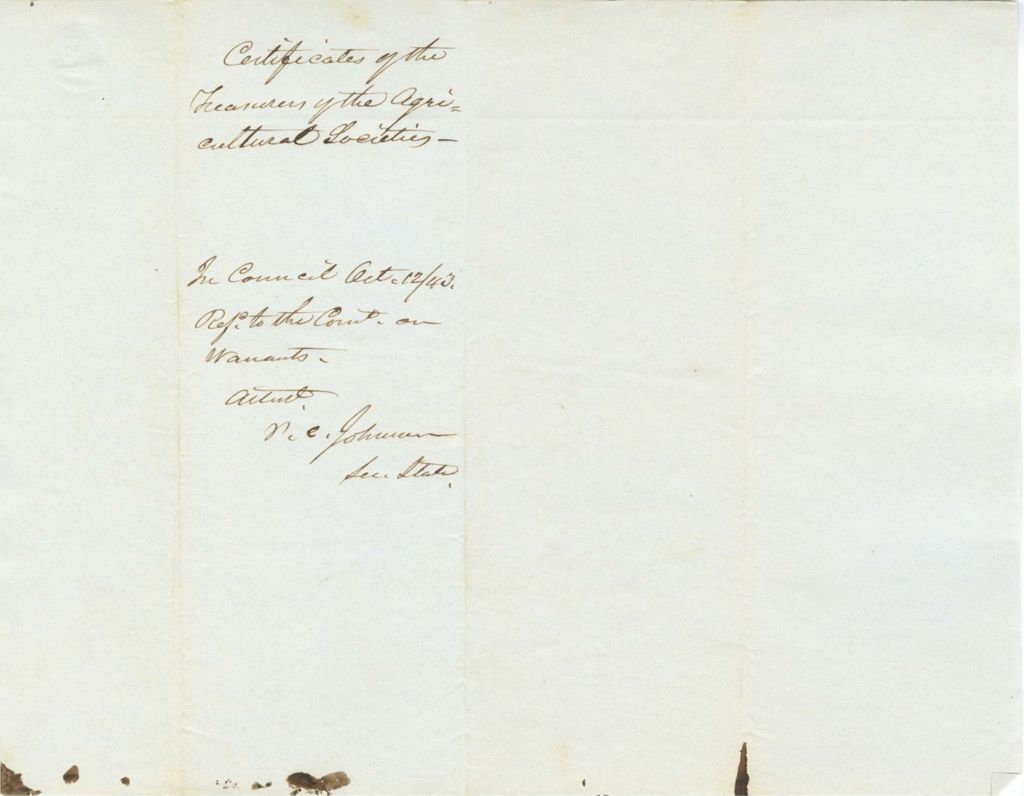 Certificates of the
Treasurers of the Agri=
cultural Societies –
In Council Oct. 12/43.
Ref. to the Comt. on
Warrants.
Attest.
P. C. Johnson
Sec. State.